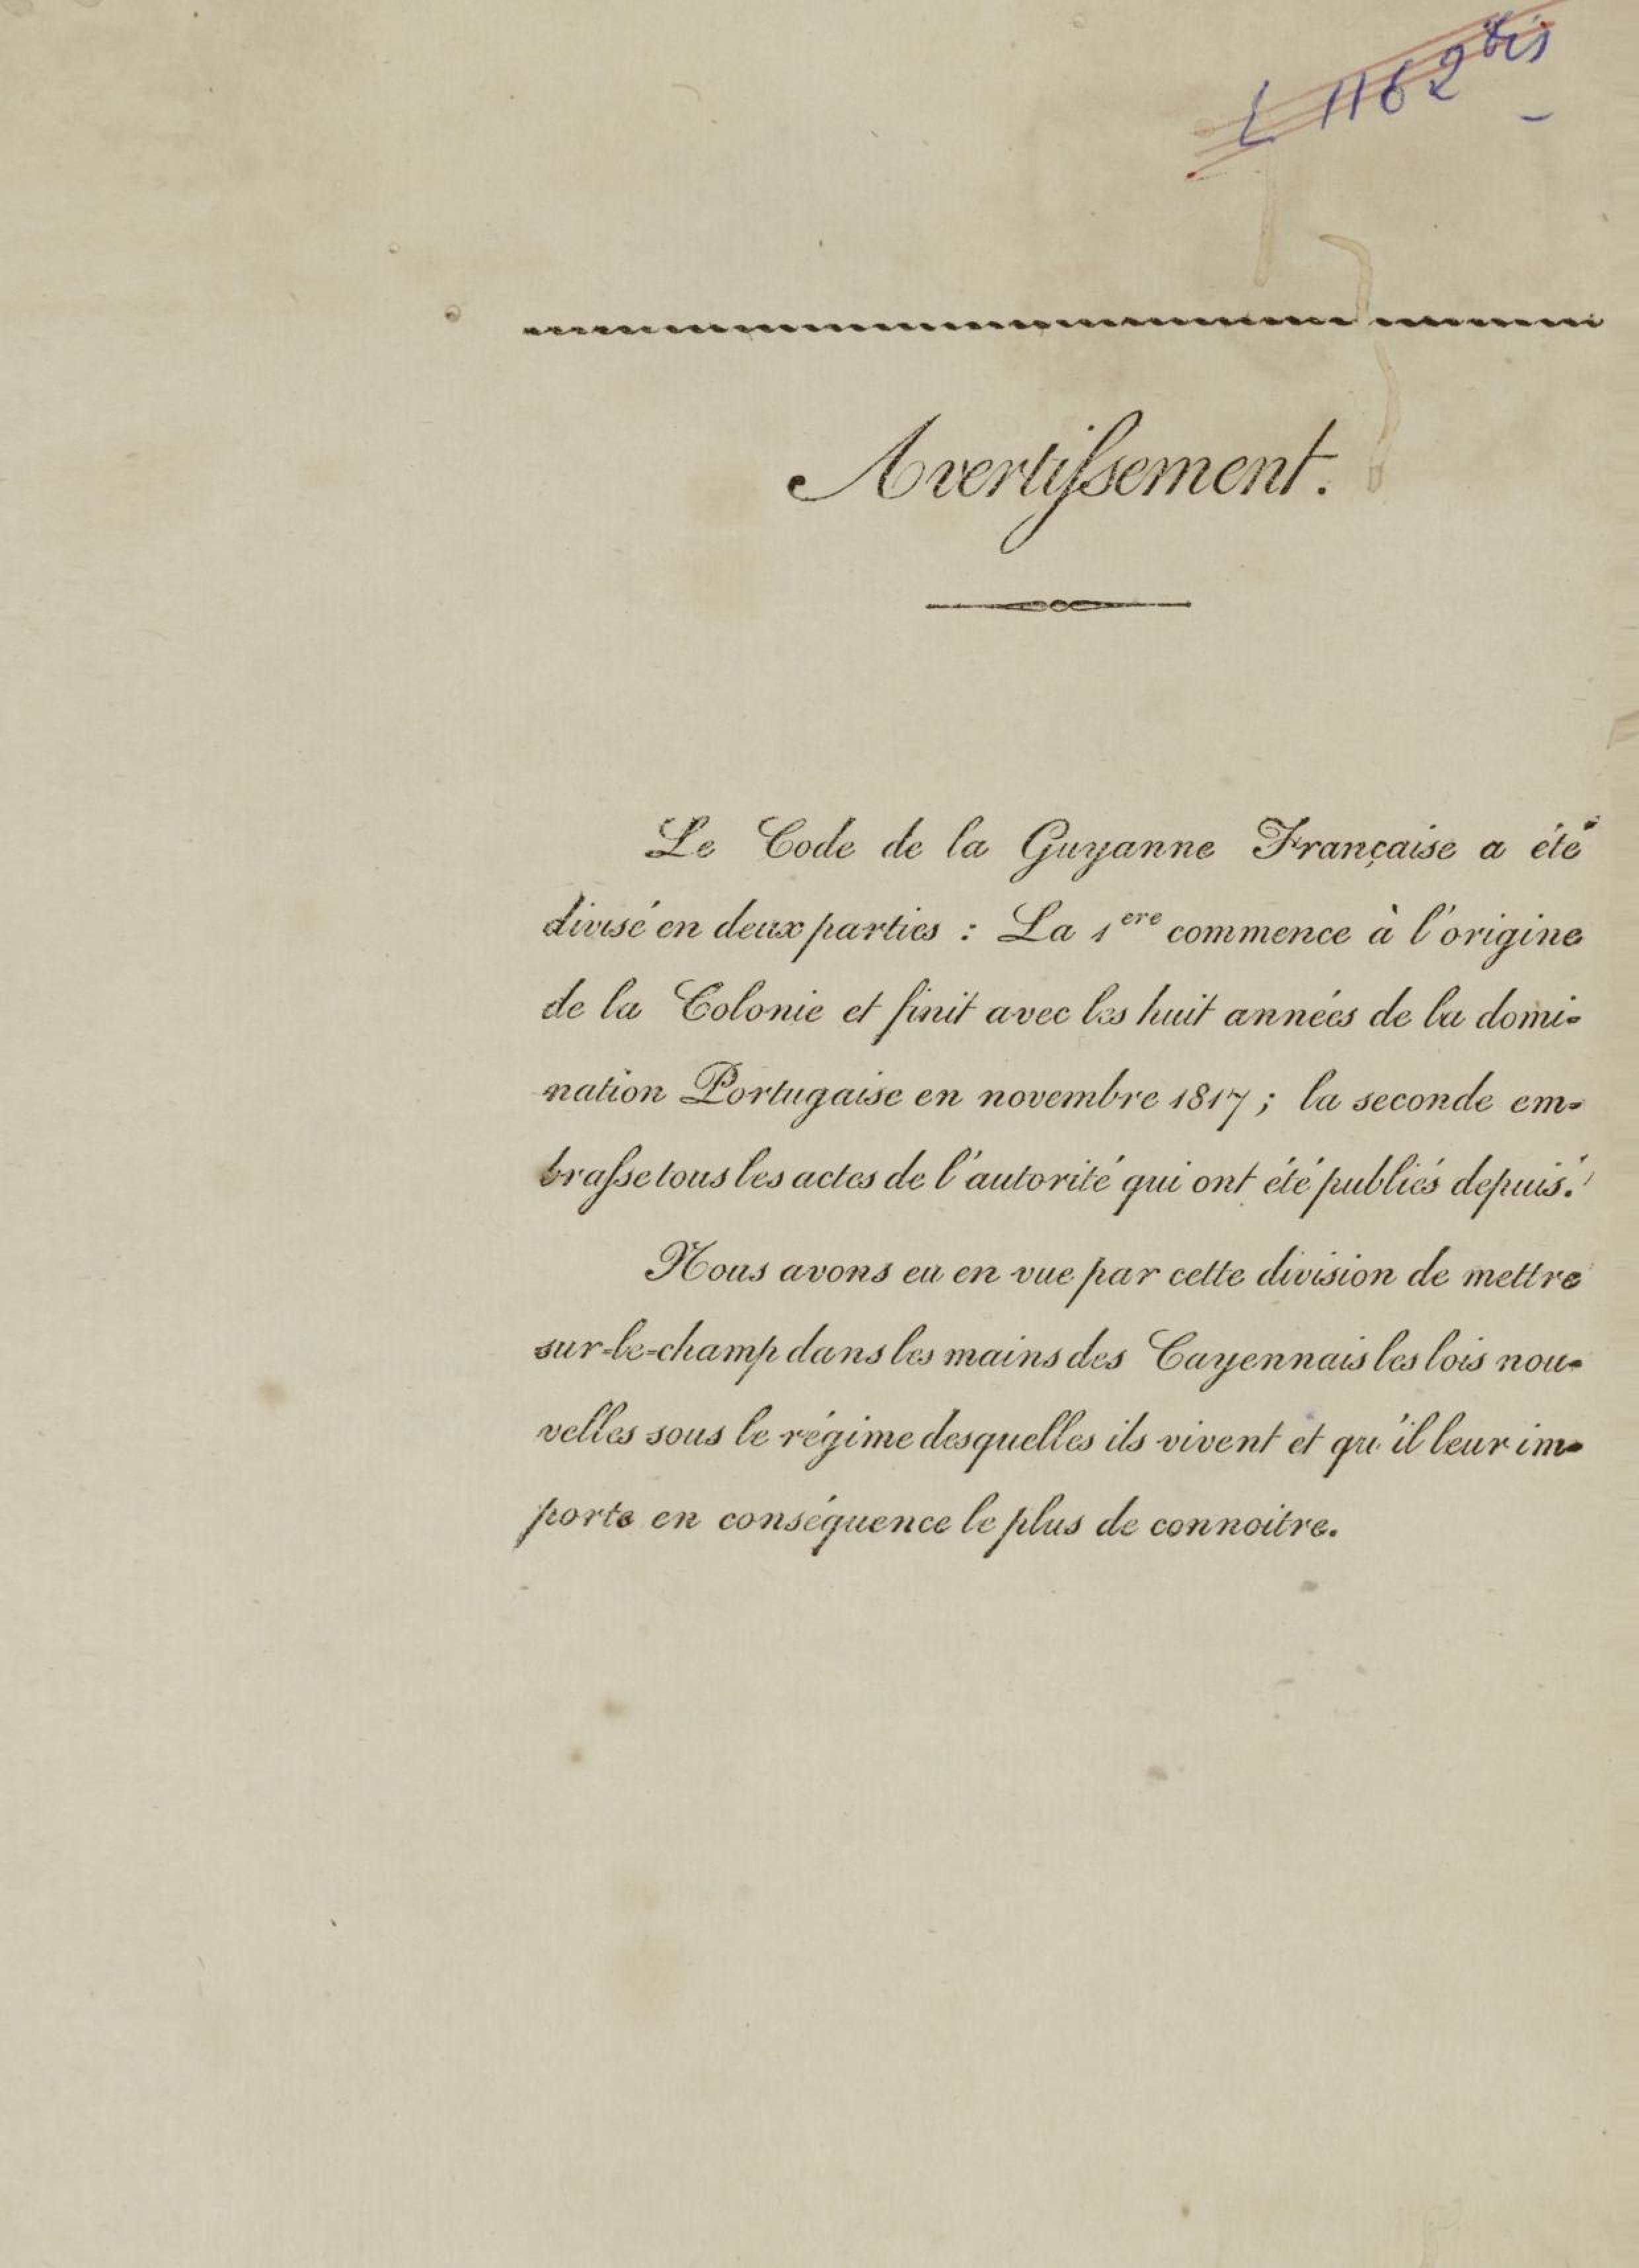 L 1162 bis
Avertiſsement.
Le Code de la Guyanne Française a été
divisé en deux parties : La 1ere commence à l'origine
de la Colonie et finit avec les huit années de la domi-
nation Portugaise en novembre 1817 ; la seconde em-
braſse tous les actes de l'autorité qui ont été publiés depuis.
Nous avons eu en vue par cette division de mettre
sur-le-champ dans les mains des Cayennais les lois nou-
velles sous le régime desquelles ils vivent et qu'il leur im-
porte en conséquence le plus de connoitre.